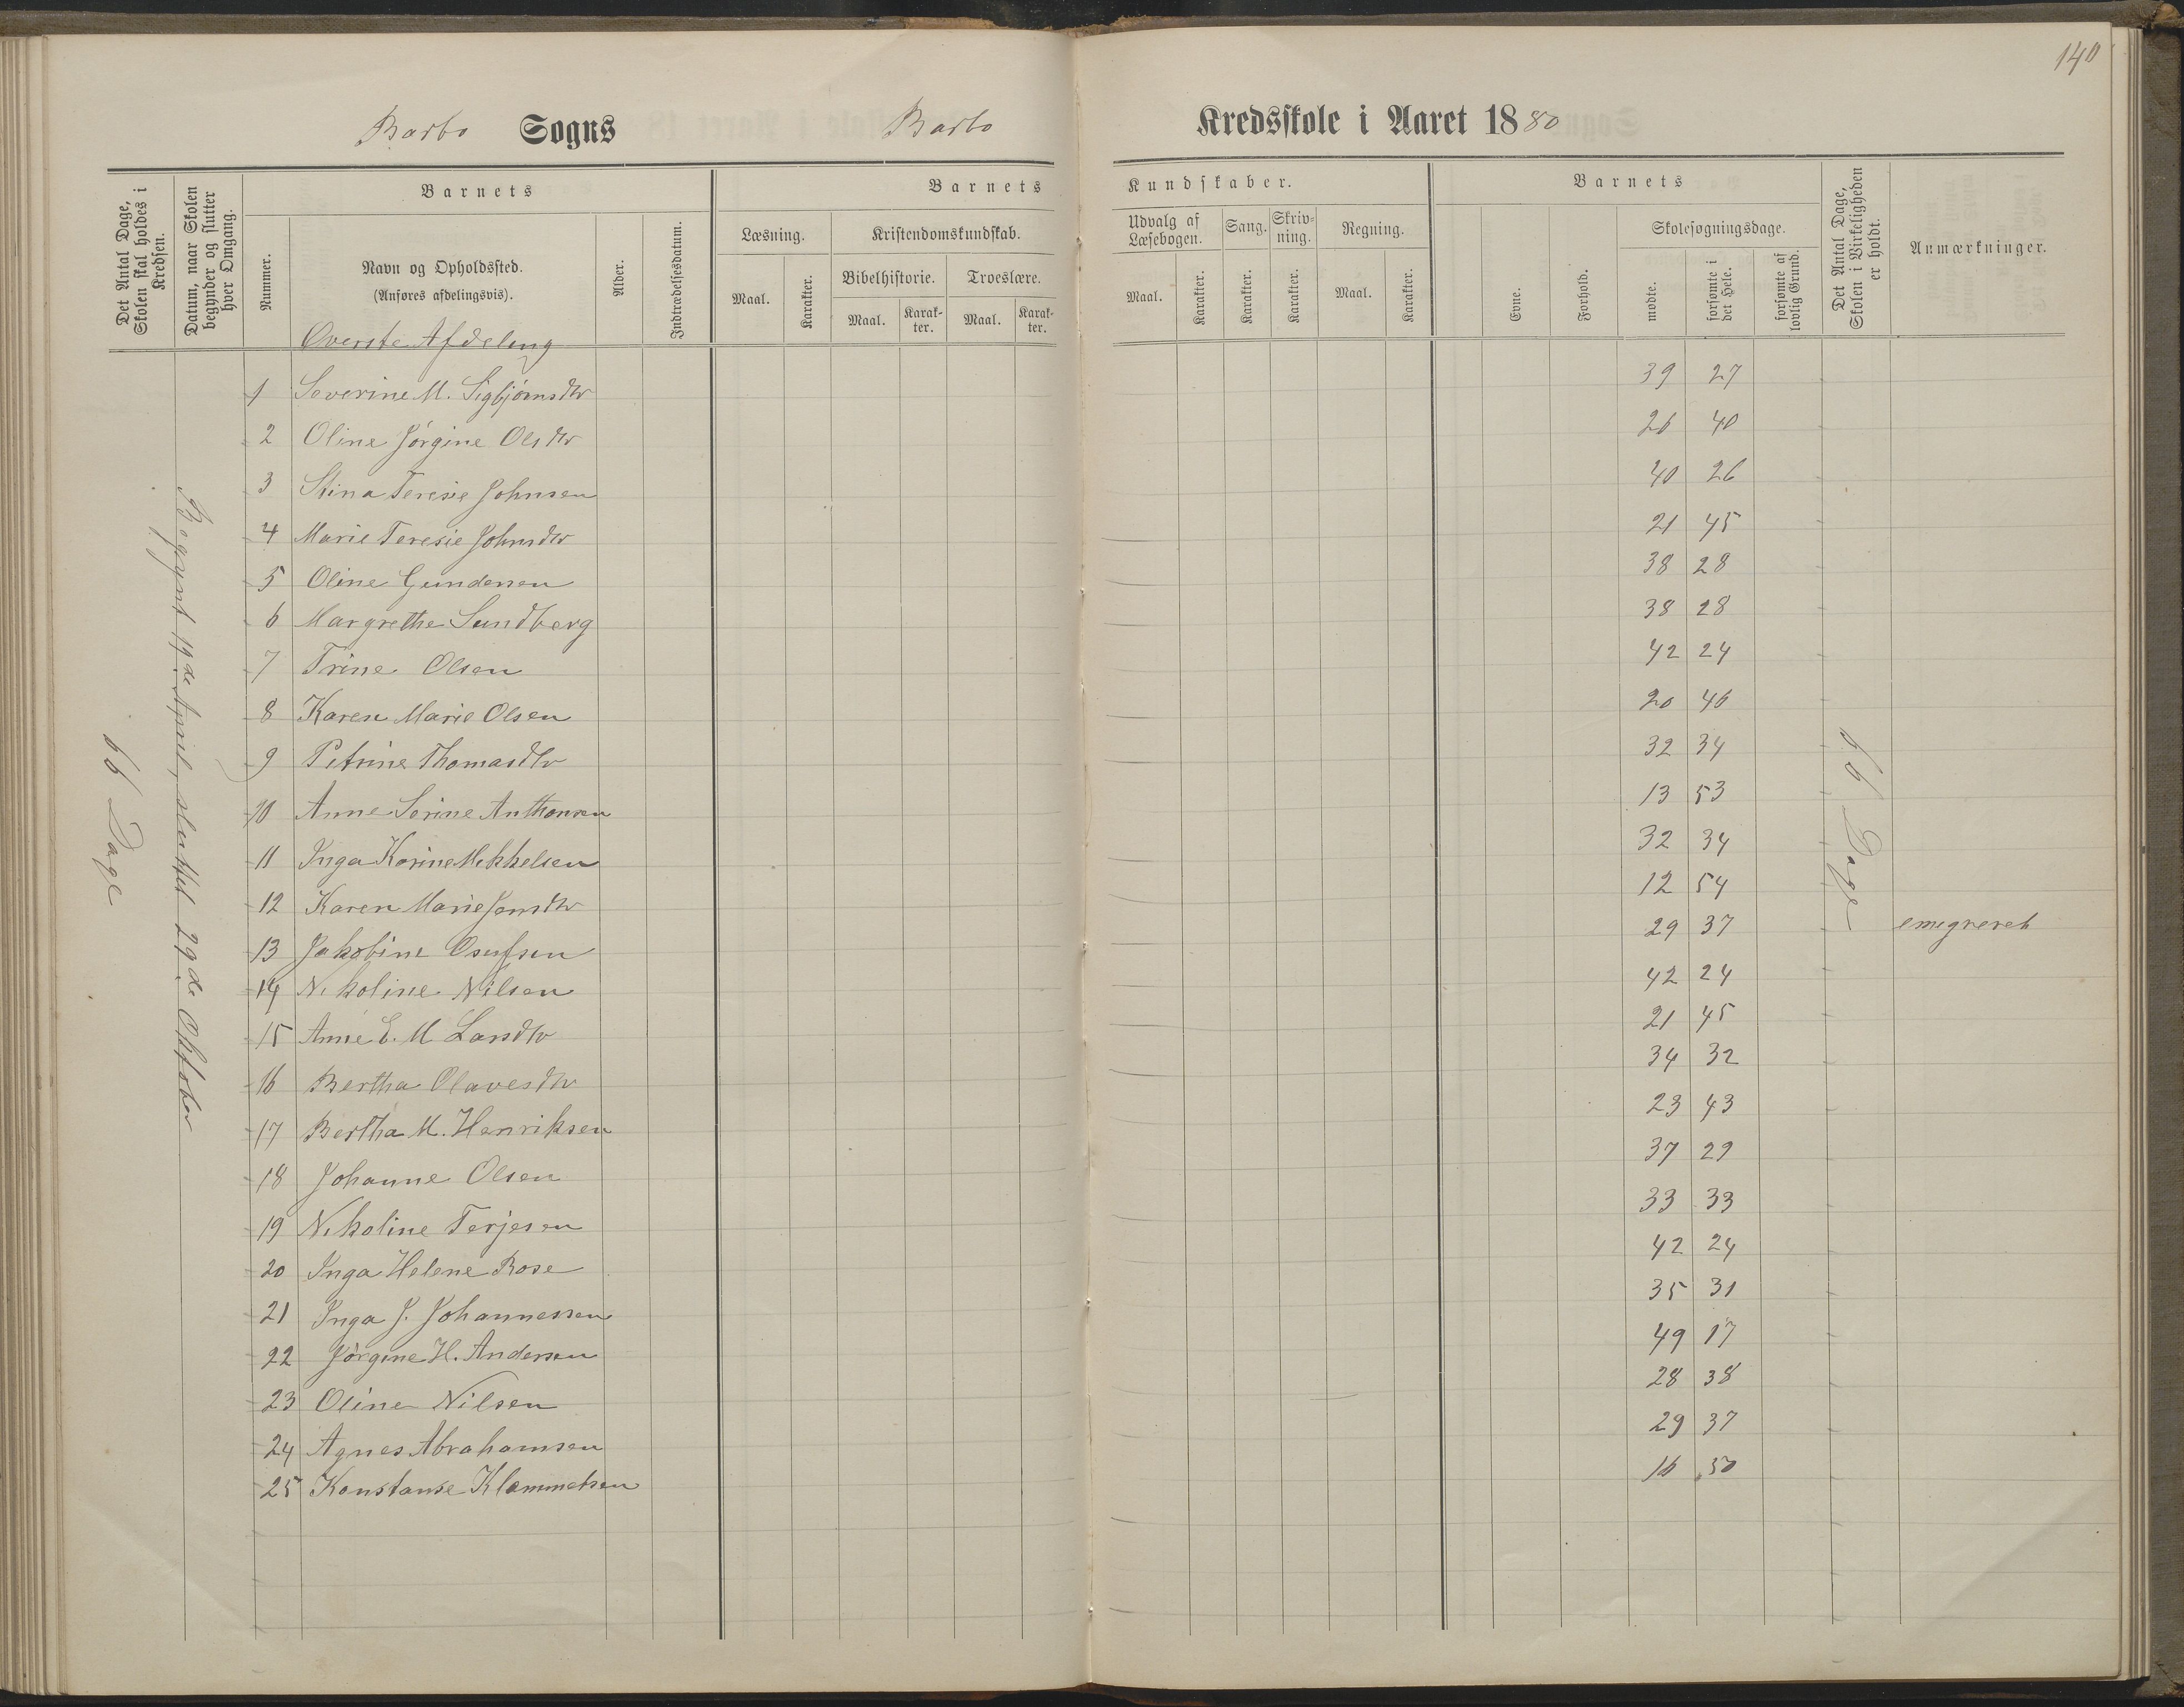 140
Barbo Sogns Barbo Kredsskole i Aaret 1880
Det Antal Dage, Skolen skal holdes i Kredsen.
Datum, naar Skolen begynder og slutter hver Omgang.
Barnets
Nummer.
Navn og Opholdssted.
(Anføres afdelingsvis).
Alder.
Indtrædelsesdatum.
Barnets Kundskaber.
Læsning.
Maal.
Karakter.
Kristendomskundskab.
Bibelhistorie.
Maal.
Karakter.
Troeslære.
Maal.
Karakter.
Udvalg af Læsebogen.
Maal.
Karakter.
Sang.
Karakter.
Skrivning.
Karakter.
Regning.
Maal.
Karakter.
Barnets
Evne.
Forhold.
Skolesøgningsdage.
mødte.
forsømte i det Hele.
forsømte af lovlig Grund.
Det Antal Dage, Skolen i Virkeligheden er holdt.
Anmærkninger.
66 Dage
Begynt 19de April, sluttet 29de Oktober
Øverste Afdeling
1 Severine M. Sigbjørnsdtr 39 27
2 Oline Jørgine Olsdtr 26 40
3 Stina Teresie Johnsen 40 26
4 Marie Teresie Johnsdtr 21 45
5 Oline Gundersen 38 28
6 Margrethe Sundberg 38 28
7 Trine Olsen 42 24
8 Karen Marie Olsen 20 46
9 Petrine Thomasdtr 32 34
10 Anne Serine Anthonsen 13 53
11 Inga Korine Mikkelsen 32 34
12 Karen Marie Jensdtr 12 54
13 Jakobine Osufsen 29 37 emigreret
14 Nikoline Nilsen 42 24
15 Anne E. M Larsdtr 21 45
16 Bertha Olavesdtr 34 32
17 Bertha M. Henriksen 23 43
18 Johanne Olsen 37 29
19 Nikoline Terjesen 33 33
20 Inga Helene Rose 42 24
21 Inga J. Johannessen 35 31
22 Jørgine H. Andersen 49 17
23 Oline Nilsen 28 38
24 Agnes Abrahamsen 29 37
25 Konstanse Klemmetsen 16 50
66 Dage